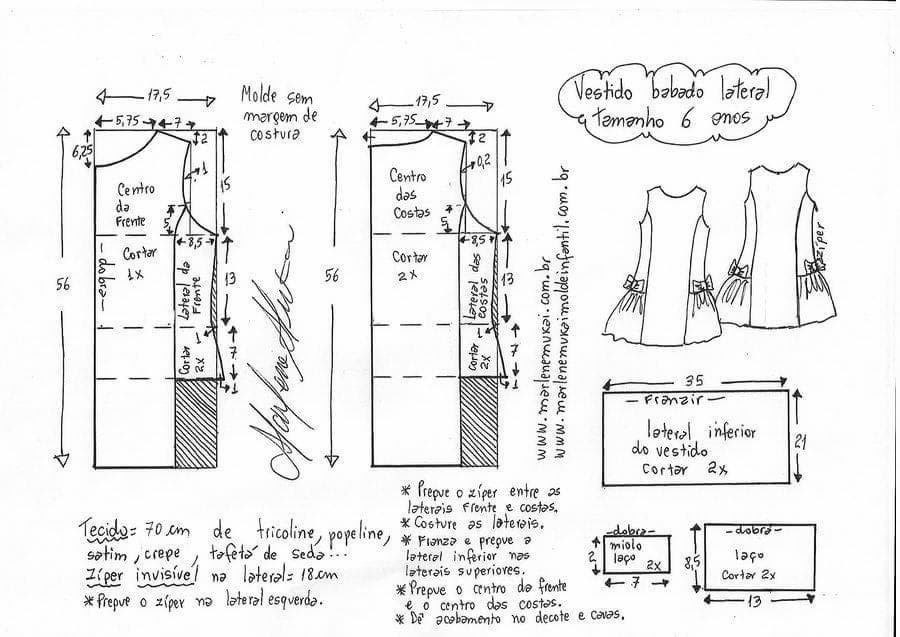 Vestido babado lateral
tamanho 6 anos
Molde sem
margem de
costura
17,5
5,75
7
2
6,25
1
15
Centro
da
Frente
5
8,5
Cortar
1x
dobra
Lateral da
Frente
13
56
1
7
Cortar
2x
1
17,5
5,75
7
2
0,2
15
Centro
das
Costas
5
8,5
Cortar
2x
Lateral das
costas
13
56
1
7
Cortar
2x
1
www.marlenemukai.com.br
www.marlenemukaimoldeinfantil.com.br
zíper
35
Franzir
lateral inferior
do vestido
cortar 2x
21
dobra
miolo
laço
2x
2
7
dobra
laço
Cortar 2x
8,5
13
Tecido= 70 cm de tricoline, popeline,
satim, crepe, tafetá de seda...
Zíper invisível na lateral= 18 cm
* Prepue o zíper na lateral esquerda.
* Prepue o zíper entre as
laterais frente e costas.
* Costure as laterais.
* Franza e prepue a
lateral inferior nas
laterais superiores.
* Prepue o centro da frente
e o centro das costas.
* Dê acabamento no decote e cavas.